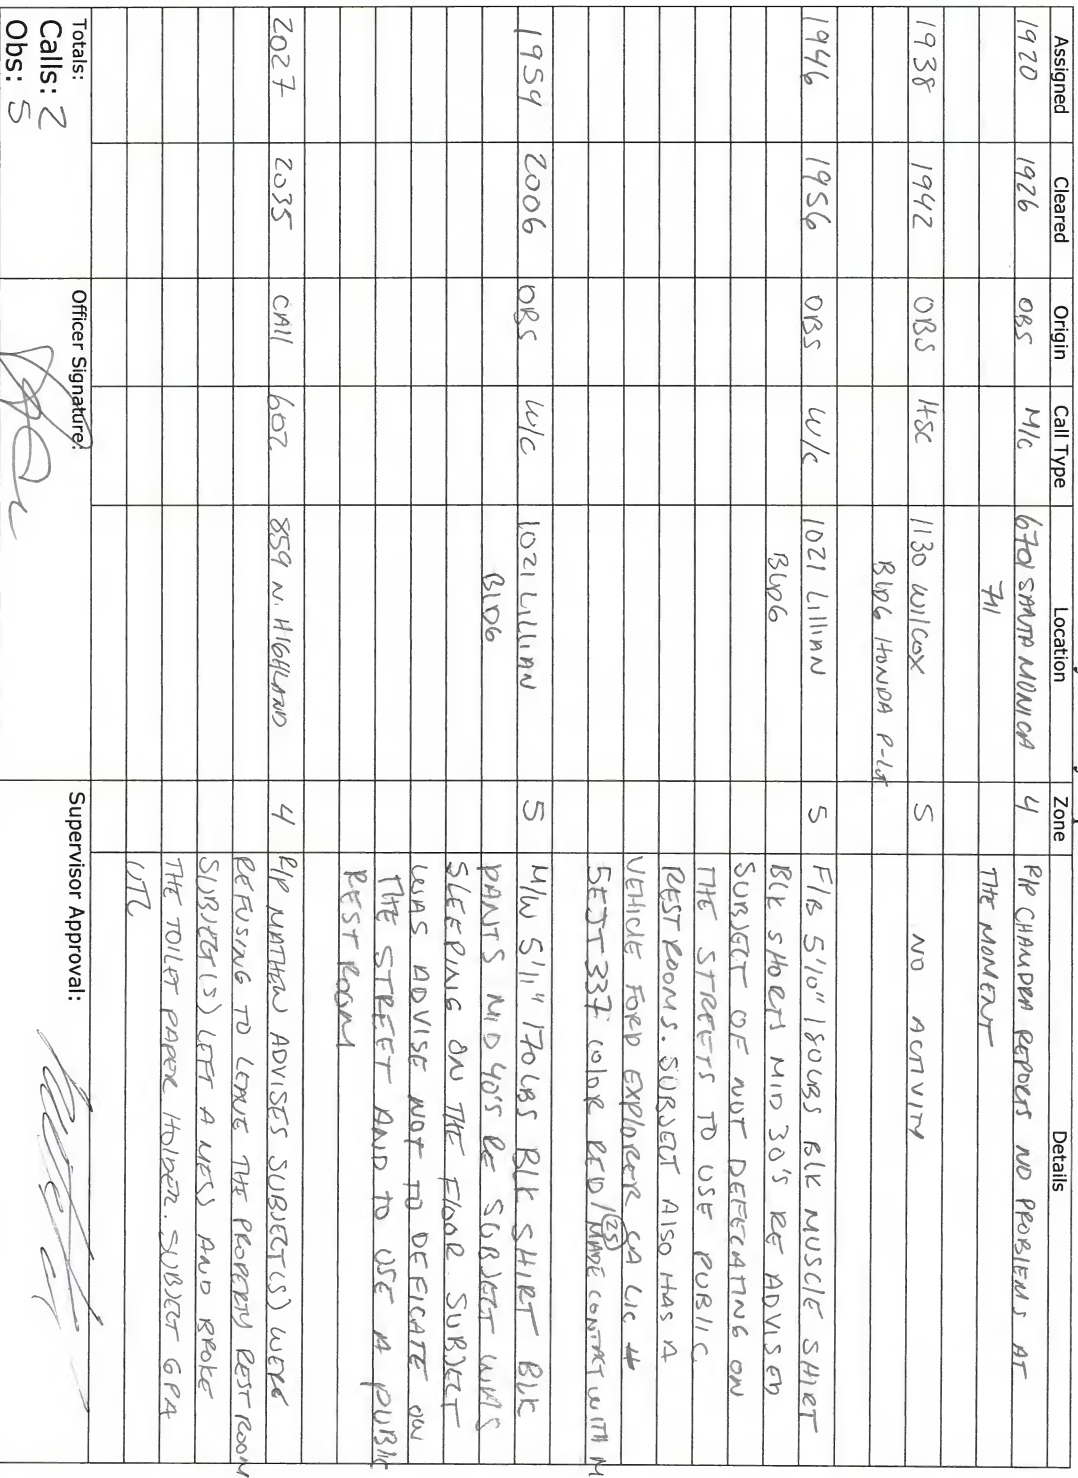 Assigned Cleared Origin Call Type Location Zone Details
1920 1926 OBS M/C 6701 SANTA MONICA 4 P/P CHANDRA REPORTS NO PROBLEMS AT
711 THE MOMENT
1938 1942 OBS HSC 1130 WILCOX 5 NO ACTIVITY
BLDG HONDA P-LOT
1946 1956 OBS W/C 1021 LILLIAN 5 F/B 5'10" 180LBS BLK MUSCLE SHIRT
BLDG BLK SHORTS MID 30'S RE ADVISED
SUBJECT OF NOT DEFECATING ON
THE STREETS TO USE PUBLIC
RESTROOMS. SUBJECT ALSO HAS A
VEHICLE FORD EXPLORER CA LIC #
5EJT337 COLOR RED / (25) MADE CONTACT WITH M
1959 2006 OBS W/C 1021 LILLIAN 5 M/W 5'11" 170LBS BLK SHIRT BLK
BLDG PANTS MID 40'S RE SUBJECT WAS
SLEEPING ON THE FLOOR. SUBJECT
WAS ADVISE NOT TO DEFICATE ON
THE STREET AND TO USE A PUBLIC
REST ROOM
2027 2035 CALL 602 859 N. HIGHLAND 4 P/P MATHEN ADVISES SUBJECT(S) WERE
REFUSING TO LEAVE THE PROPERTY REST ROOM
SUBJECT(S) LEFT A MESS AND BROKE
THE TOILET PAPER HOLDER. SUBJECT GPA
UTL
Totals: Officer Signature: Supervisor Approval:
Calls: 2
Obs: 5